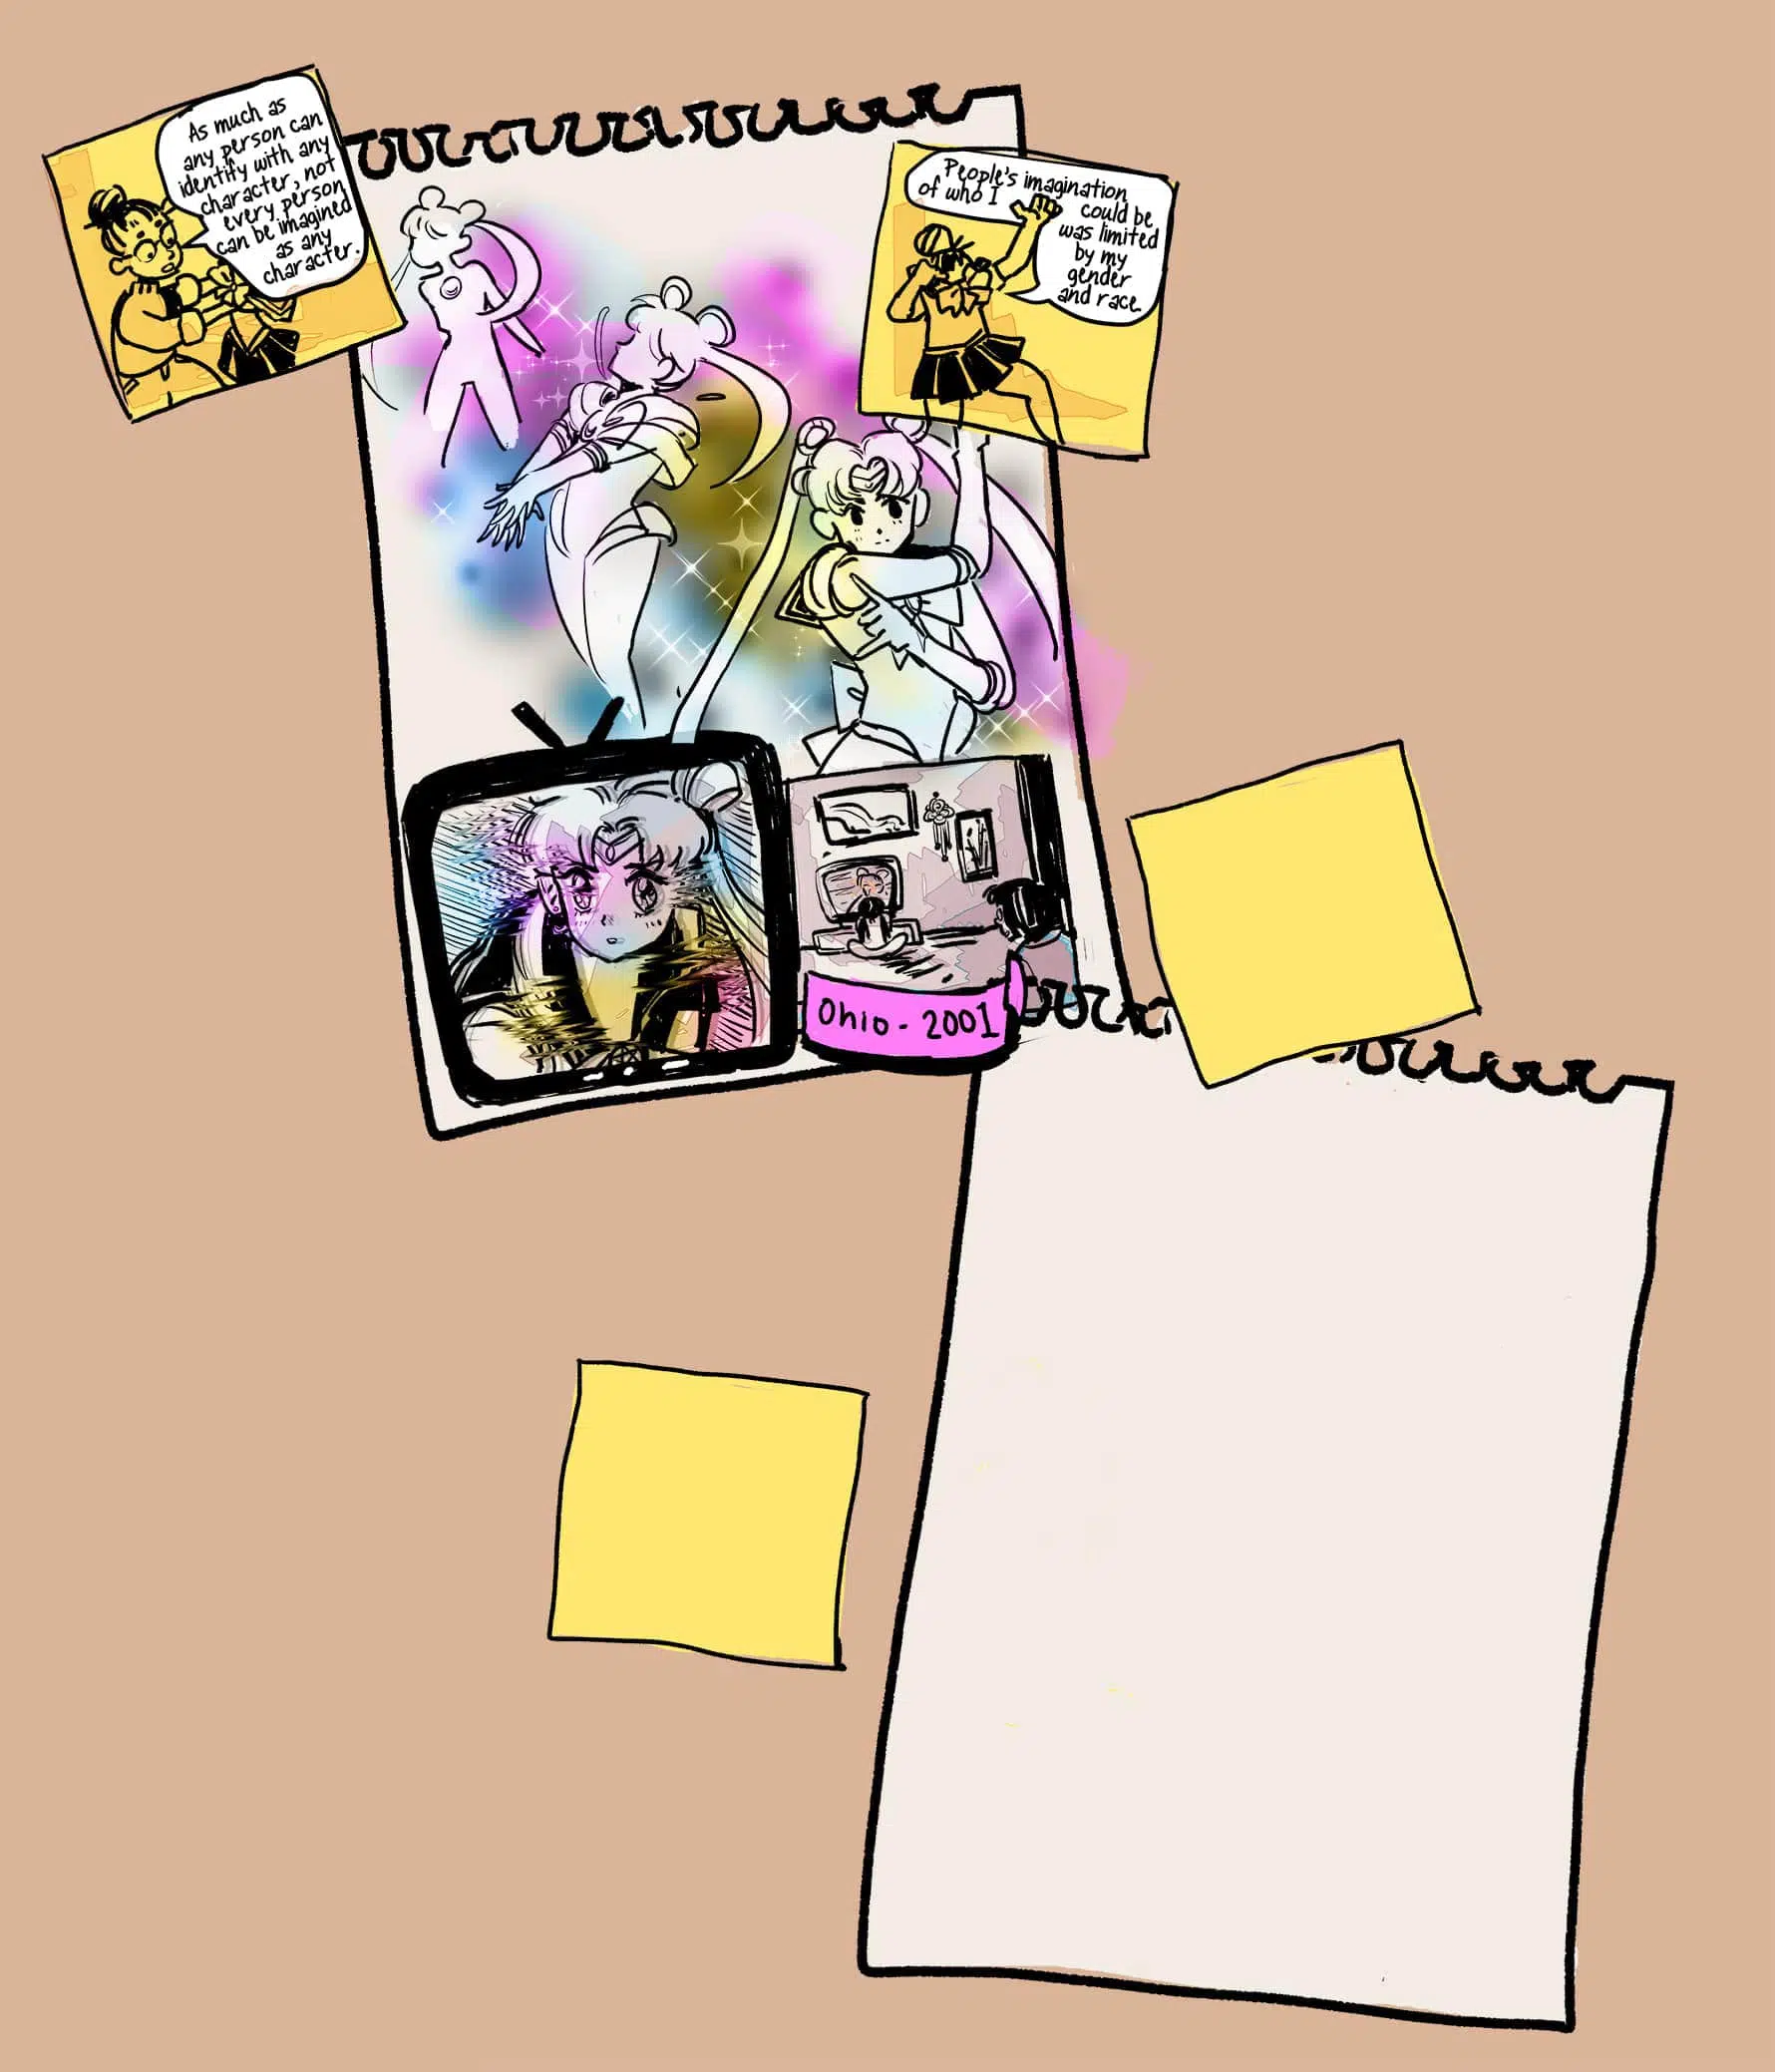 As much as
any person can
identify with any
character, not
every person
can be imagined
as any
character.
People's imagination
of who I
could be
was limited
by my
gender
and race
Ohio - 2001